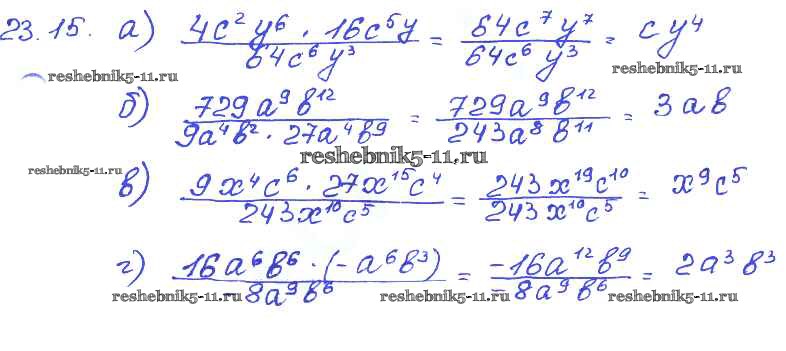 23.15. а) 4c² y⁶ · 16c⁵y / 64c⁶y³ = 64c⁷y⁷ / 64c⁶y³ = cy⁴
reshebnik5-11.ru reshebnik5-11.ru
б) 729a⁹b¹² / 9a⁴b² · 27a⁴b⁹ = 729a⁹b¹² / 243a⁸b¹¹ = 3ab
reshebnik5-11.ru reshebnik5-11.ru
в) 9x⁴c⁶ · 27x¹⁵c⁴ / 243x¹⁰c⁵ = 243x¹⁹c¹⁰ / 243x¹⁰c⁵ = x⁹c⁵
г) 16a⁶b⁶ · (-a⁶b³) / -8a⁹b⁶ = -16a¹²b⁹ / -8a⁹b⁶ = 2a³b³
reshebnik5-11.ru reshebnik5-11.ru reshebnik5-11.ru